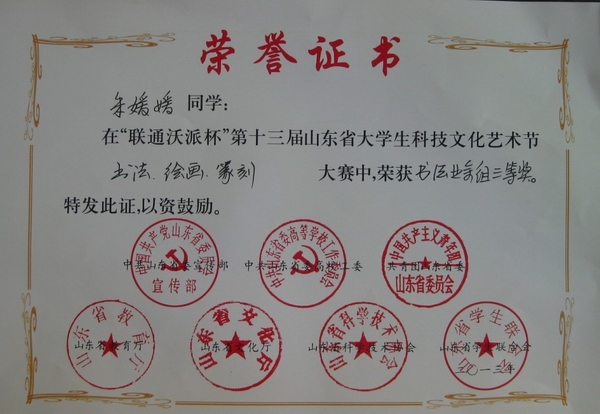 荣誉证书
媛媛 同学：
在“联通沃派杯”第十三届山东省大学生科技文化艺术节
书法、绘画、篆刻 大赛中，荣获书法业余组三等奖。
特发此证，以资鼓励。
中国共产党山东省委员会
宣传部
中共山东省委高等学校工作委员会
中国共产主义青年团
山东省委员会
中共山东省委宣传部 中共山东省委高校工委 共青团山东省委
山东省教育厅
山东省文化厅
山东省科学技术协会
山东省学生联合会
山东省教育厅 山东省文化厅 山东省科学技术协会 山东省学生联合会
二〇一三年